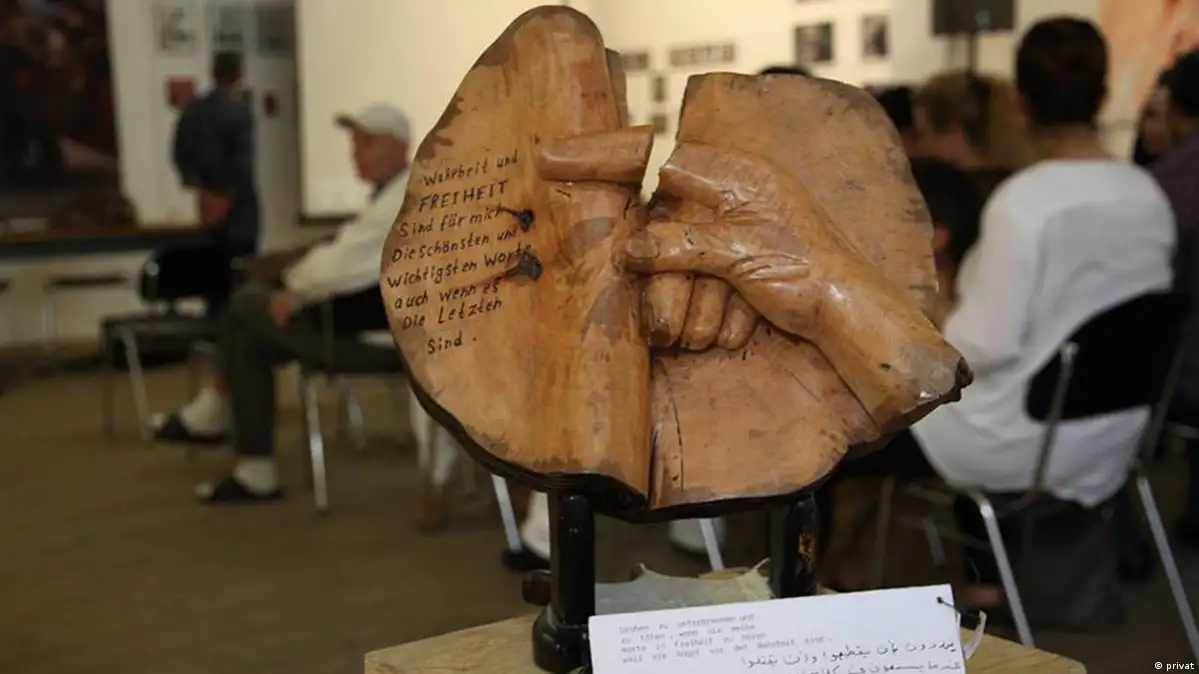 Wahrheit und
FREIHEIT
Sind für mich
Die schönsten und
wichtigsten Worte
auch wenn es
Die Letzten
Sind .
Drohen zu und
zu töten , wenn sie meine
Worte in Freiheit zu hören
weil sie Angst vor der Wahrheit sind .
يهددون بأن يقطعوا وأن يقتلوا
© privat